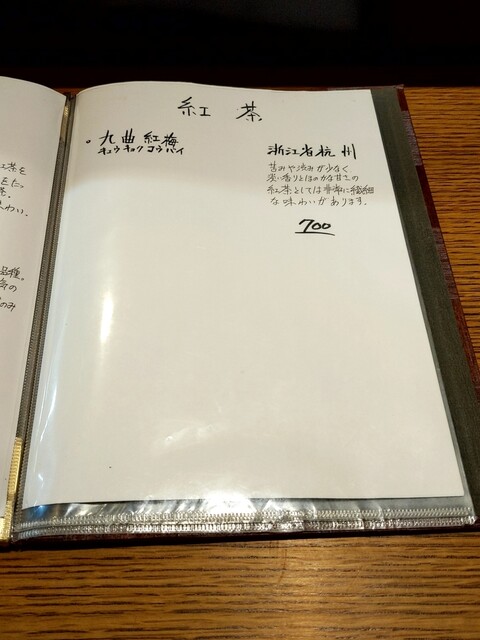 紅茶
九曲紅梅
キュウキョクコウバイ
浙江省杭州
苦みや渋みが少なく
淡い香りとほのかな甘さの
紅茶としては非常に繊細
な味わいがあります。
700
紅茶を
味わい。
品種。
のみ